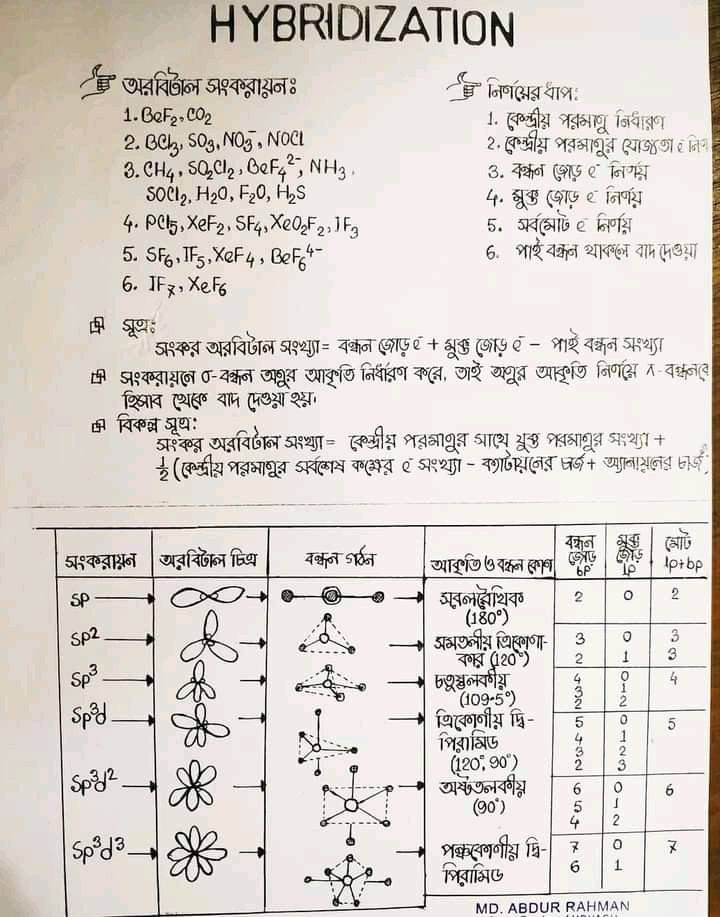 HYBRIDIZATION
অরবিটাল সংকরায়নঃ
1. BeF₂, CO₂
2. BCl₃, SO₃, NO₃⁻, NOCl
3. CH₄, SO₂Cl₂, BeF₄²⁻, NH₃,
SOCl₂, H₂O, F₂O, H₂S
4. PCl₅, XeF₂, SF₄, XeO₂F₂, IF₃
5. SF₆, IF₅, XeF₄, BeF₆⁴⁻
6. IF₇, XeF₆
নির্ণয়ের ধাপঃ
1. কেন্দ্রীয় পরমাণু নির্ধারণ
2. কেন্দ্রীয় পরমাণুর যোজ্যতা e
3. বন্ধন জোড় e⁻ নির্ণয়
4. মুক্ত জোড় e⁻ নির্ণয়
5. সর্বমোট e⁻ নির্ণয়
6. পাই বন্ধন থাকলে বাদ দেওয়া
সূত্রঃ
সংকর অরবিটাল সংখ্যা = বন্ধন জোড় e⁻ + মুক্ত জোড় e⁻ − পাই বন্ধন সংখ্যা
সংকরায়নে σ-বন্ধন অণুর আকৃতি নির্ধারণ করে, তাই অণুর আকৃতি নির্ণয়ে π-বন্ধনকে
হিসাব থেকে বাদ দেওয়া হয়।
বিকল্প সূত্র:
সংকর অরবিটাল সংখ্যা = কেন্দ্রীয় পরমাণুর সাথে যুক্ত পরমাণুর সংখ্যা +
½ (কেন্দ্রীয় পরমাণুর সর্বশেষ কক্ষের e⁻ সংখ্যা − ক্যাটায়নের চার্জ + অ্যানায়নের চার্জ)
সংকরায়ন অরবিটাল চিত্র বন্ধন গঠন আকৃতি ও বন্ধন কোণ বন্ধন জোড় bp মুক্ত জোড় lp মোট lp+bp
sp সরলরৈখিক 2 0 2
(180°)
sp² সমতলীয় ত্রিকোণা- 3 0 3
কার (120°) 2 1 3
sp³ চতুস্তলকীয় 4 0 4
(109.5°) 3 1
2 2
sp³d ত্রিকোণীয় দ্বি- 5 0 5
পিরামিড 4 1
(120°, 90°) 3 2
2 3
sp³d² অষ্টতলকীয় 6 0 6
(90°) 5 1
4 2
sp³d³ পঞ্চকোণীয় দ্বি- 7 0 7
পিরামিড 6 1
MD. ABDUR RAHMAN